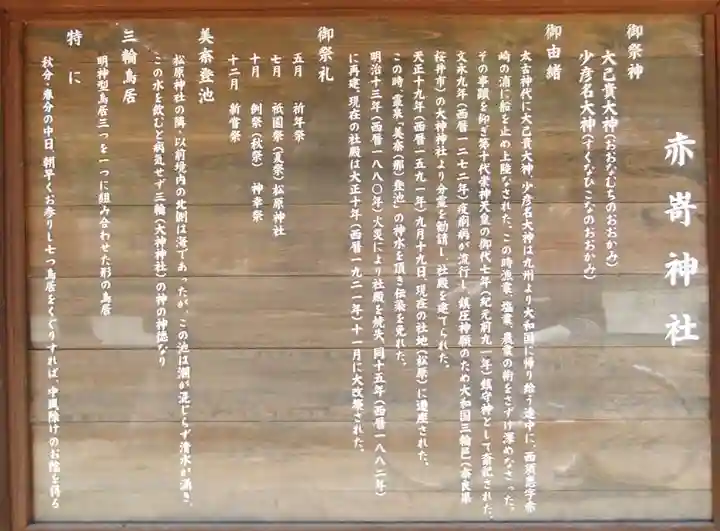 赤嵜神社
御祭神
大己貴大神(おおなむちのおおかみ)
少彦名大神(すくなひこなのおおかみ)
御由緒
太古神代に大己貴大神、少彦名大神は九州より大和国に帰り給う途中に、西須恵字赤
崎の浦に船を止め上陸なされた。この時漁業、塩業、農業の術をさずけ深めなさった。
その幸蹟を仰ぎ第十代崇神天皇の御代七年(紀元前九一年)鎮守神として斎祀された。
文永九年(西暦一二七二年)疫痢病が流行し、鎮圧神願のため大和国三輪邑(奈良県
桜井市)の大神神社より分霊を勧請し、社殿を建てられた。
天正十九年(西暦一五九一年)九月十九日、現在の社地(松原)に遷座された。
この時、霊泉、美奈(那)登池」の神水を頂き伝染を免れた。
明治十三年(西暦一八八〇年)火災により社殿を焼失、同十五年(西暦一八八二年)
に再建、現在の社殿は大正十年(西暦一九二一年)十一月に大改築された。
御祭礼
五月 祈年祭
七月 祇園祭(夏祭)松原神社
十月 例祭(秋祭) 神幸祭
十二月 新嘗祭
美奈登池
松原神社の隣、以前境内の北側は海であったが、この池は潮が混じらず清水が涌き、
この水を飲むと病気せず三輪(大神神社)の神の神徳なり
三輪鳥居
明神型鳥居三つを一つに組み合わせた形の鳥居
特に
秋分・春分の中日、朝早くお参りし七つ鳥居をくぐりすれば、中風除けのお陰を得る